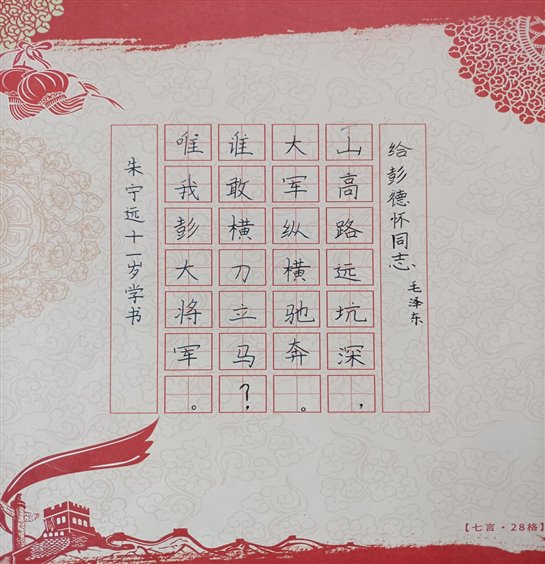 给彭德怀同志、
毛泽东
山高路远坑深，
大军纵横驰奔。
谁敢横刀立马？
唯我彭大将军。
朱宁远十一岁学书
【七言·28格】